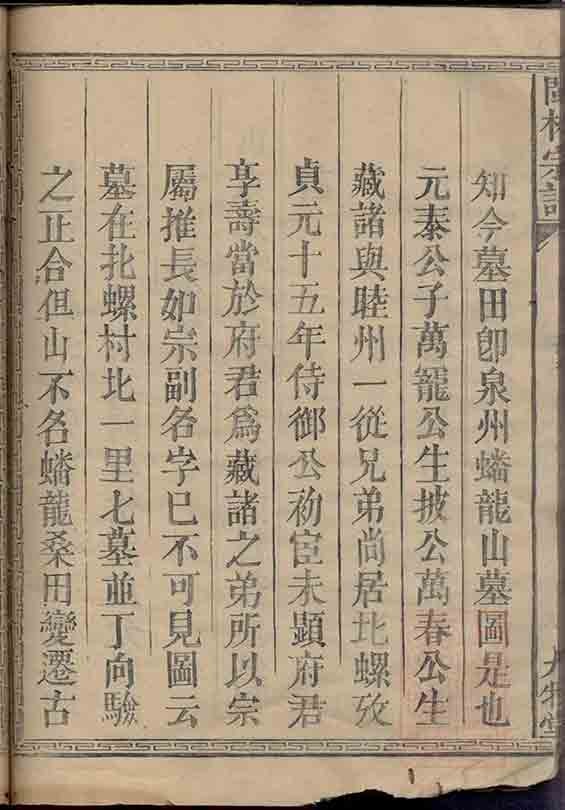 閩林宗譜
知今墓田卽泉州蟠龍山墓圖是也
元泰公子萬寵公生披公萬春公生
藏諸與睦州一從兄弟尚居北螺攷
貞元十五年侍御公初宦未顯府君
享壽當於府君爲藏諸之弟所以宗
屬推長如宗副名字巳不可見圖云
墓在北螺村北一里七墓並丁向驗
之止合但山不名蟠龍桑田變遷古